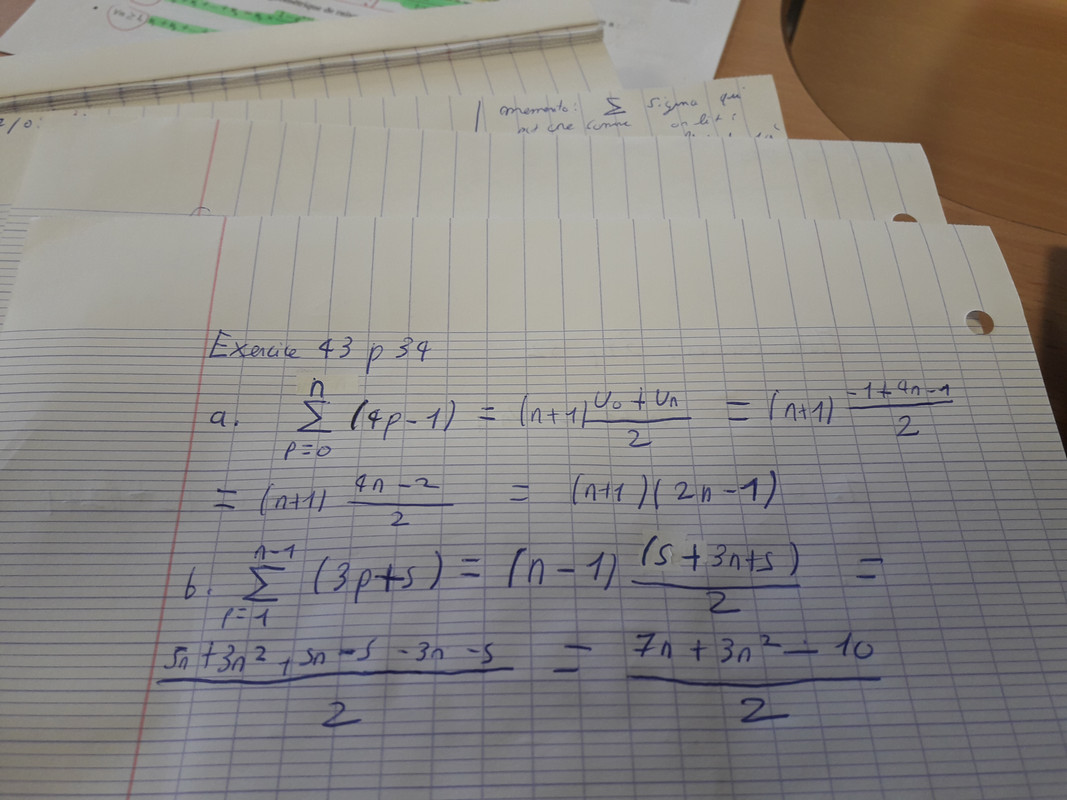 memento: Σ sigma qui
est une somme on lit :
Exercice 43 p 34
a. \sum_{p=0}^{n} (4p-1) = (n+1) \frac{U_0 + U_n}{2} = (n+1) \frac{-1+4n-1}{2}
= (n+1) \frac{4n-2}{2} = (n+1)(2n-1)
b. \sum_{p=1}^{n-1} (3p+5) = (n-1) \frac{(5+3n+5)}{2} =
\frac{5n+3n^2+5n-5-3n-5}{2} = \frac{7n+3n^2-10}{2}